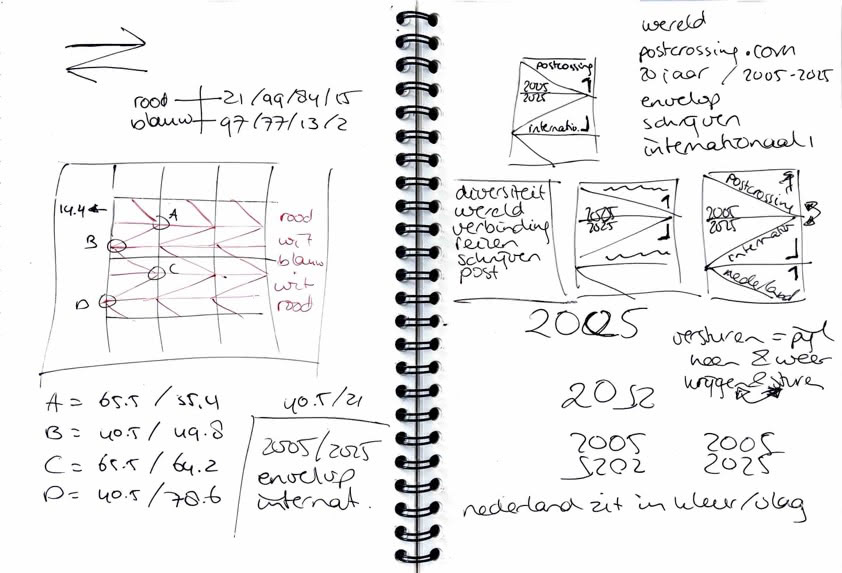 rood 21/99/84/15
blauw 97/77/13/2
14.4
A
B
C
D
rood
wit
blauw
wit
rood
A = 65.5 / 35.4
B = 40.5 / 49.8
C = 65.5 / 64.2
D = 40.5 / 78.6
40.5/21
2005/2025
envelop
internat.
wereld
postcrossing.com
20 jaar / 2005-2025
envelop
schrijven
internationaal
postcrossing
2005
2025
internatio.
diversiteit
wereld
verbinding
reizen
schrijven
post
2005
2025
postcrossing
2005
2025
internatio
nederland
2005
versturen = pijl
heen & weer
krijgen & sturen
2052
2005
5202
2005
2025
nederland zit in kleur/vlag